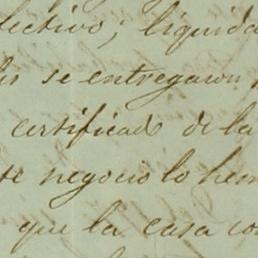 lectivo; liquida
se entregaron
certificado de la
te negocio lo hem
que la casa con